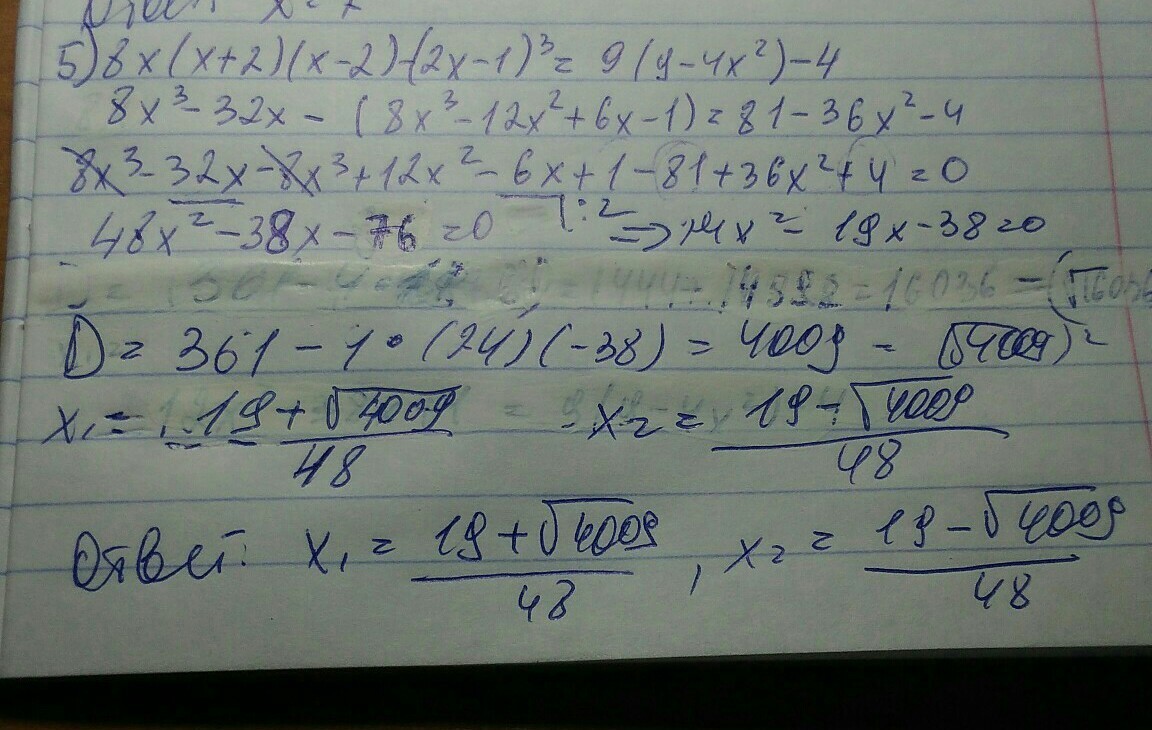 5) 8x(x+2)(x-2)-(2x-1)³= 9(9-4x²)-4
8x³-32x-(8x³-12x²+6x-1)=81-36x²-4
8x³-32x-8x³+12x²-6x+1-81+36x²+4=0
48x²-38x-76=0 |:2 => 24x²-19x-38=0
D= 361-1•(24)(-38)= 4009 = (√4009)²
x₁= 19+√4009/48 x₂= 19-√4009/48
Ответ: x₁= 19+√4009/48, x₂= 19-√4009/48